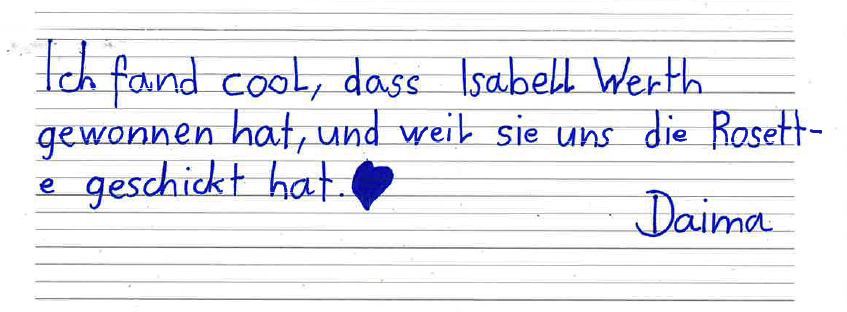 Ich fand cool, dass Isabell Werth
gewonnen hat, und weil sie uns die Rosett-
e geschickt hat.
Daima